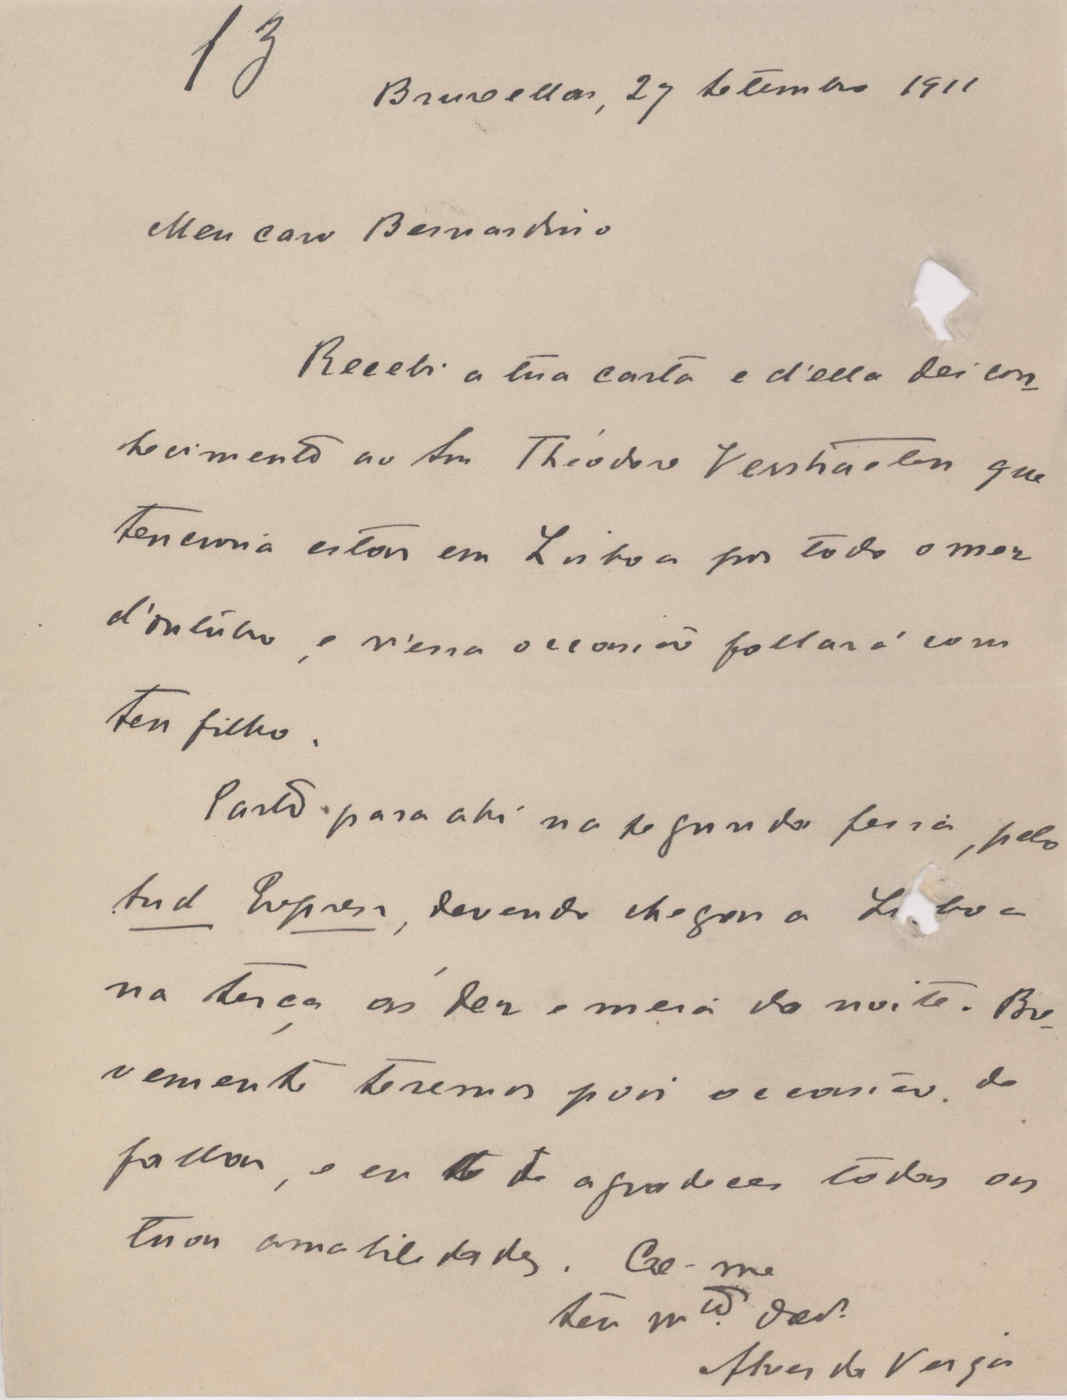 13
Bruxellas, 27 Setembro 1911
Meu caro Bernardino
Recebi a tua carta e d'ella dei con-
hecimento ao Snr Théodore Verstraeten que
tenciona estar em Lisboa por todo o mez
d'outubro, e n'essa occasião fallará com
teu filho.
Parto para ahi na segunda feira, pelo
Sud Express, devendo chegar a Lisboa
na terça ás dez e meia da noite. Bre-
vemente teremos pois occasião de
fallar, e eu de te agradecer todas as
tuas amabilidades. Crê-me
teu mto. ded.
Alves da Veiga